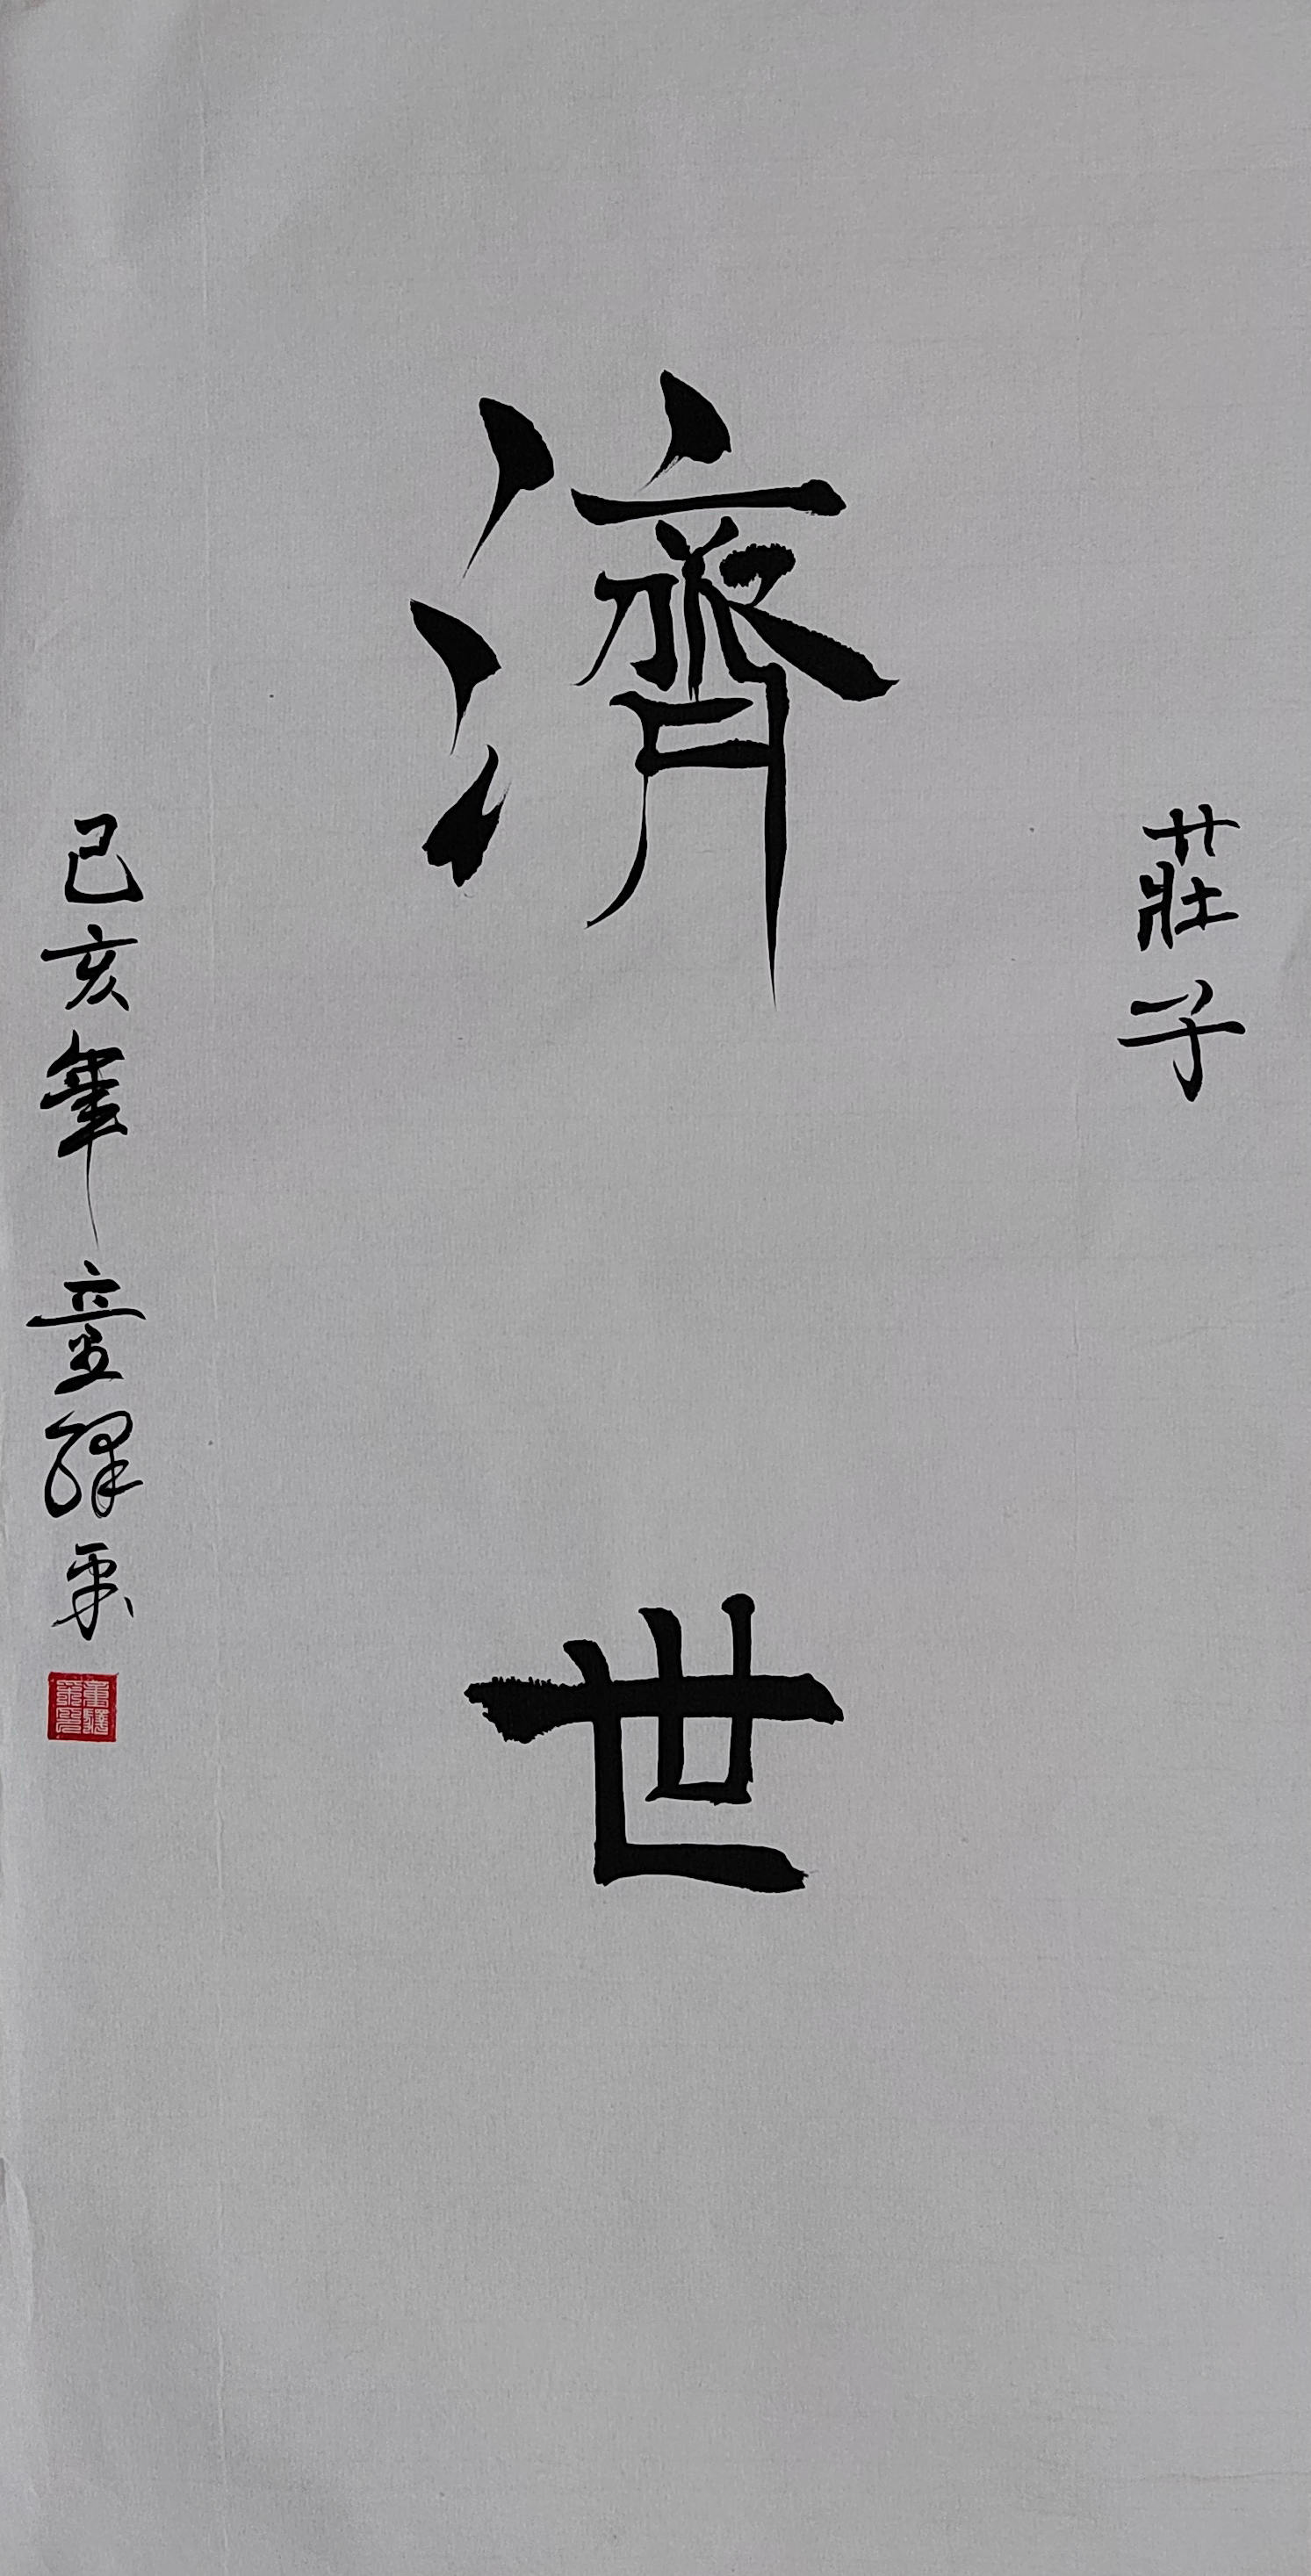 莊子
濟世
己亥年童驛彩